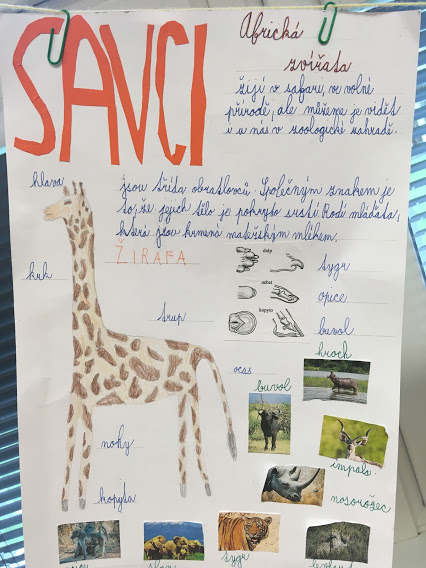 SAVCI
Africká
zvířata
žijí v safaru, ve volné
přírodě, ale můžeme je vidět
i u nás v zoologické zahradě.
jsou třída obratlovců. Společným znakem je
to, že jejich tělo je pokryto srstí. Rodí mláďata,
která jsou krmená mateřským mlékem.
ŽIRAFA
hlava
krk
trup
ocas
nohy
kopyta
dráp
tygr
nehet
opice
kopyto
buvol
hroch
buvol
impala
nosorožec
slon
tygr